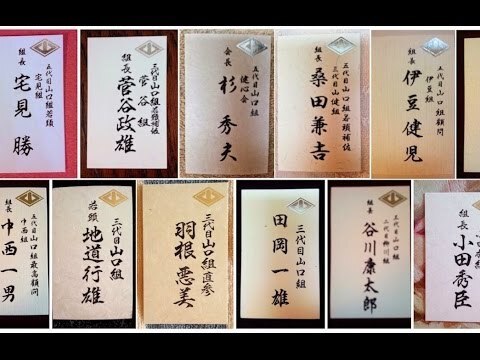 五代目山口組若頭
宅見組
組長
宅見 勝
三代目山口組若頭補佐
菅谷組
組長 菅谷政雄
五代目山口組
健心会
会長
杉 秀夫
五代目山口組若頭補佐
三代目山健組
桑田兼吉
五代目山口組顧問
伊豆組
組長
伊豆健児
五代目山口組最高顧問
中西組
組長
中西一男
三代目山口組
若頭
地道行雄
三代目山口組直参
羽根惡美
三代目山口組
田岡一雄
三代目山口組
二代目柳川組
組長
谷川康太郎
組長
小田秀臣